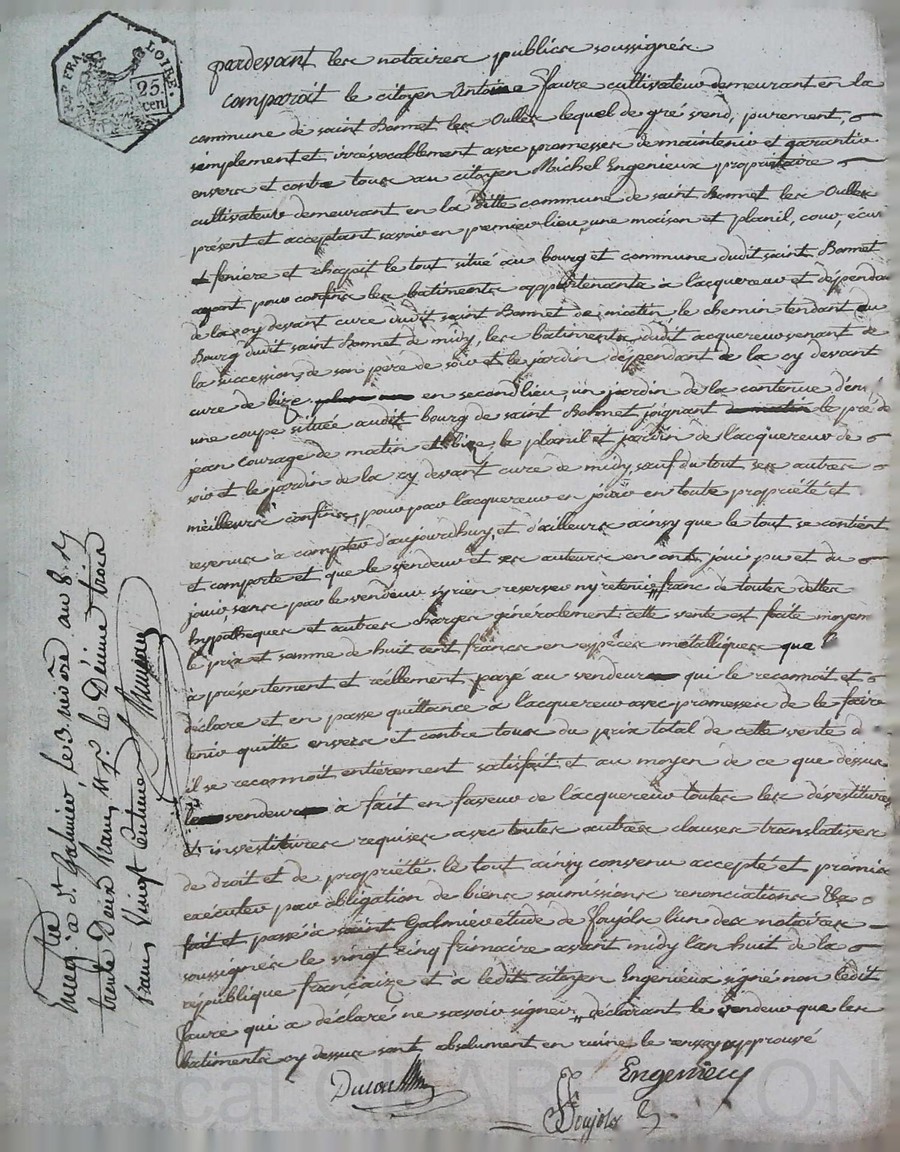 REP. FRA. LOIRE.
25. cen
pardevant les notaires publics soussignés.
Comparoit le citoyen Antoine faure cultivateur demeurant en la
commune de saint Bonnet les Oulles lequel de gré vend, purement,
simplement et irrévocablement avec promesses de maintenir et garantir
envers et contre tous au citoyen Michel Engenieux propriétaire
cultivateur demeurant en la ditte commune de saint Bonnet les Oulles
présent et acceptant savoir en premier lieu, une maison et planil, cour, écu
feniere et chapit le tout situé au bourg et commune dudit saint Bonnet
ayant pour confins les batiments appartenants a lacquereur et dépendan
de la cy devant cure dudit saint Bonnet de matin, le chemin tendant au
Bourg dudit saint Bonnet de midy, les batiments dudit acquereur venant de
la succession de son père de soir et le jardin dépendant de la cy devant
cure de bize. en second lieu, un jardin de la contenue d'en
une coupe située audit bourg de saint Bonnet joignant le pré de
jean Courage de matin et bize le planil et jardin de lacquereur de
soir et le jardin de la cy devant cure de midy, sauf du tout ses autres
meilleurs confins, pour par lacquereur en jouir en toute propriété et
revenus a compter d'aujourdhuy, et d'ailleurs ainsy que le tout se contient
et comporte et que le vendeur et ses auteurs en ont joui pu et du
jouir sans par le vendeur y rien reserver ny retenir franc de toutes dettes
hypotheques et autres charges généralement cette vente est faite moyen
le prix et somme de huit cent francs en espèces métalliques que
a présentement et réellement payé au vendeur qui le reconnoit et
déclare et en passe quittance a lacquereur avec promesses de le faire
tenir quitte envers et contre tous du prix total de cette vente d
il se reconnoit entièrement satisfait et au moyen de ce que dessus
le vendeur à fait en faveur de lacquereur toutes les dévestitures
et investitures requises avec toutes autres clauses translatives
de droit et de propriété. le tout ainsy convenu accepté et promis
exécuter par obligation de biens soumissions renonciations &a
fait et passé à saint Galmier étude de foujols l'un des notaires
soussignés le vingt cinq frimaire avant midy lan huit de la
république françaize et a ledit citoyen Engenieux signé non ledit
faure qui a déclaré ne savoir signer, déclarant le vendeur que les
batiments cy dessus sont absolument en ruine le renvoy approuvé
Engenieux
Foujols
Enreg. à St Galmier le 3 nivôse an 8
trente Deux francs le Dixme trois
francs vingt centimes